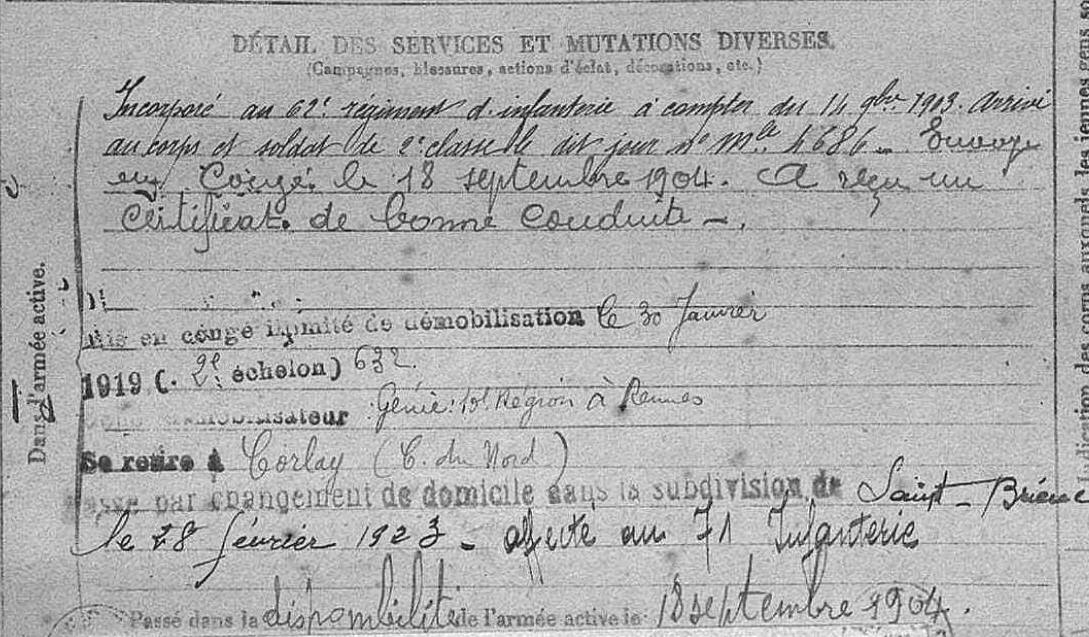 DÉTAIL DES SERVICES ET MUTATIONS DIVERSES.
(Campagnes, blessures, actions d'éclat, décorations, etc.)
Incorporé au 62e régiment d'infanterie à compter du 14 9bre 1903. Arrivé
au corps et soldat de 2e classe le dit jour n° Mle 4686_ Envoyé
en Congé le 18 septembre 1904. A reçu un
Certificat de bonne Conduite -.
Mis en congé illimité de démobilisation le 30 Janvier
1919 (. 2e échelon) 632.
démobilisateur Génie: 10e Région à Rennes
Se retire à Corlay (C. du Nord)
Passé par changement de domicile dans la subdivision de Saint-Brieuc
le 28 février 1923 - affecté au 71 Infanterie
Passé dans la disponibilité de l'armée active le 18 septembre 1904.
Dans l'armée active.